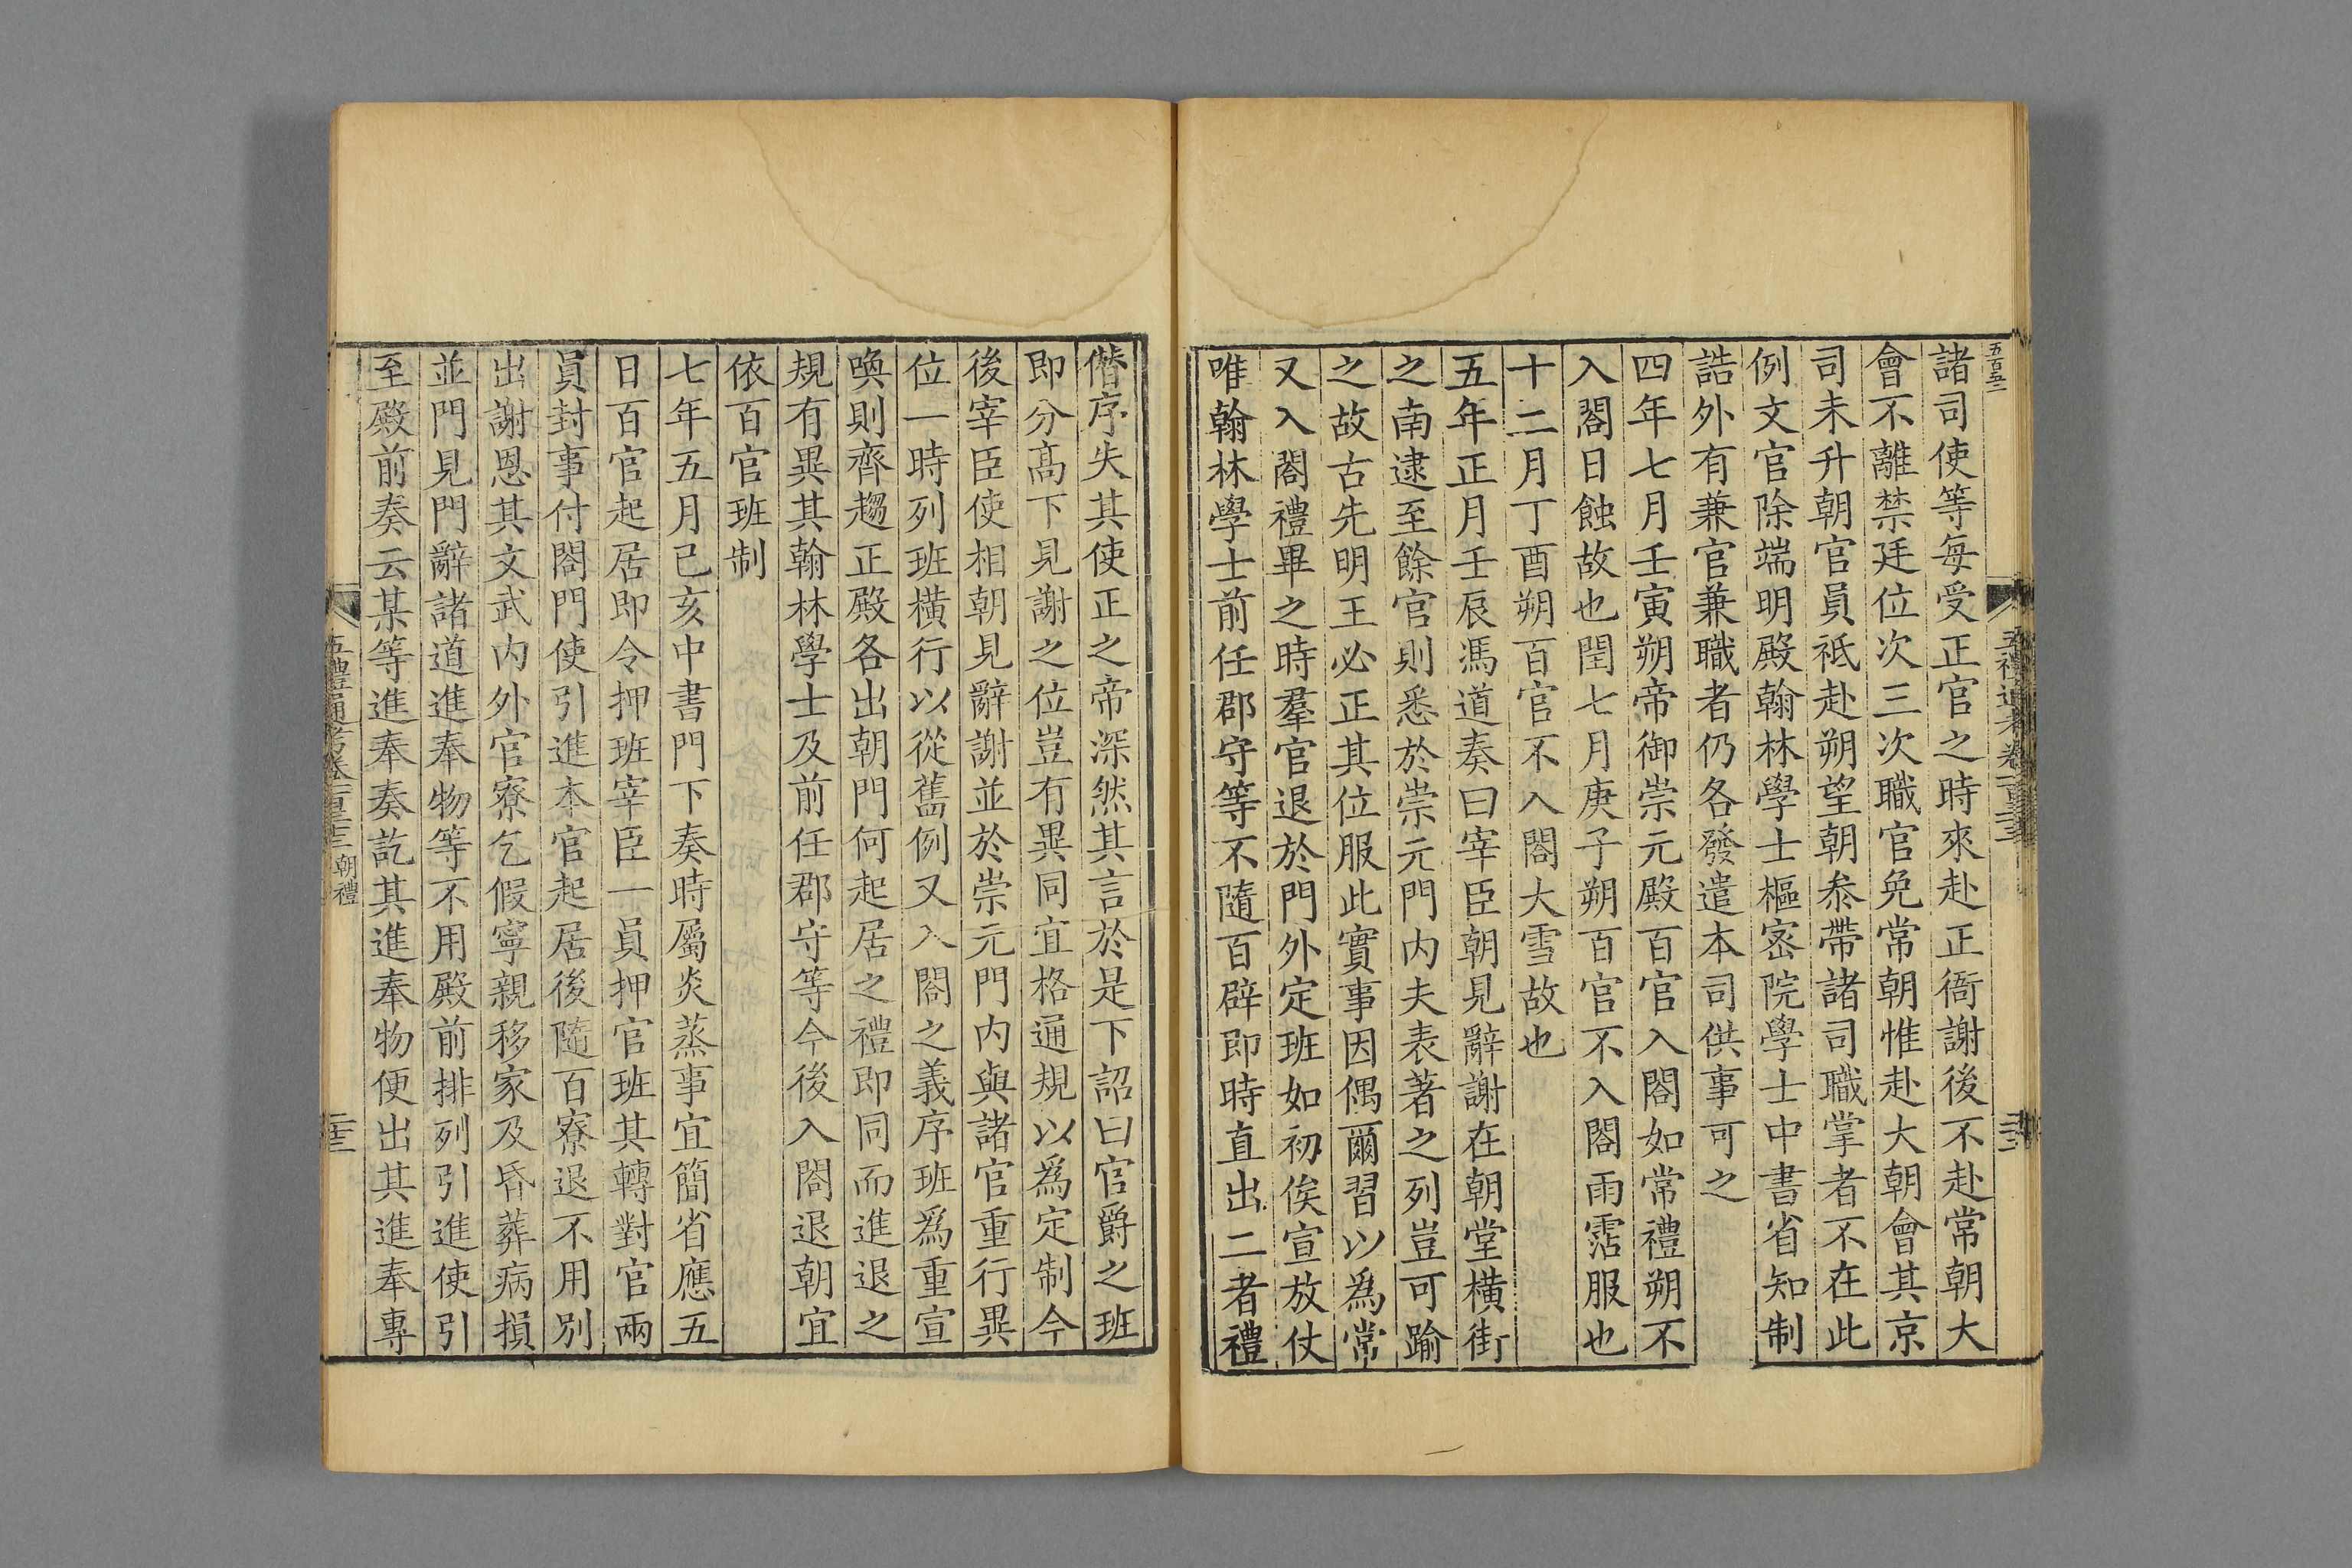 諸司使等每受正官之時來赴正衙謝後不赴常朝大
會不離禁廷位次三次職官免常朝惟赴大朝會其京
司未升朝官員祗赴朔望朝叅帶諸司職掌者不在此
例文官除端明殿翰林學士樞密院學士中書省知制
誥外有兼官兼職者仍各發遣本司供事可之
四年七月壬寅朔帝御崇元殿百官入閤如常禮朔不
入閤日蝕故也閏七月庚子朔百官不入閤雨霑服也
十二月丁酉朔百官不入閤大雪故也
五年正月壬辰馮道奏曰宰臣朝見辭謝在朝堂橫街
之南逮至餘官則悉於崇元門內夫表著之列豈可踰
之故古先明王必正其位服此實事因偶爾習以為常
又入閤禮畢之時羣官退於門外定班如初俟宣放仗
唯翰林學士前任郡守等不隨百辟即時直出二者禮
僭序失其使正之帝深然其言於是下詔曰官爵之班
即分高下見謝之位豈有異同宜格通規以為定制今
後宰臣使相朝見辭謝並於崇元門內與諸官重行異
位一時列班橫行以從舊例又入閤之義序班為重宣
喚則齊趨正殿各出朝門何起居之禮即同而進退之
規有異其翰林學士及前任郡守等今後入閤退朝宜
依百官班制
七年五月已亥中書門下奏時屬炎蒸事宜簡省應五
日百官起居即令押班宰臣一員押官班其轉對官兩
員封事付閤門使引進本官起居後隨百寮退不用別
出謝恩其文武內外官寮乞假寧親移家及昏葬病損
並門見門辭諸道進奉物等不用殿前排列引進使引
至殿前奏云某等進奉奏訖其進奉物便出其進奉專
五禮通考卷一百三十三 朝禮